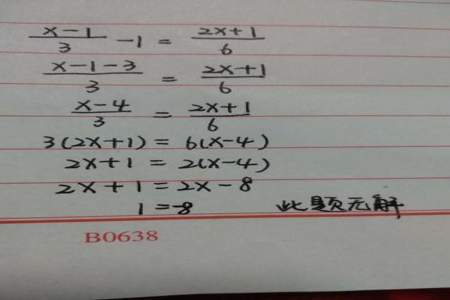 x-1/3 -1 = 2x+1/6
x-1-3/3 = 2x+1/6
x-4/3 = 2x+1/6
3(2x+1) = 6(x-4)
2x+1 = 2(x-4)
2x+1 = 2x-8
1=-8 此题无解
B0638